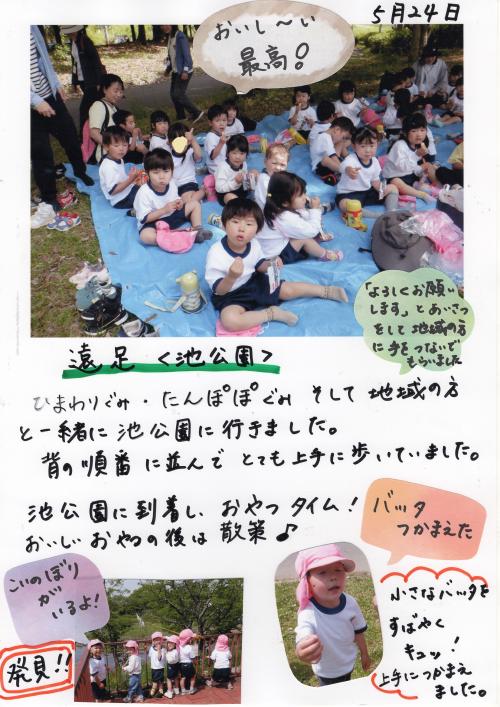 5月24日
おいし〜い
最高!
「よろしくお願い
します」とあいさつ
をして地域の方
に手をつないで
もらいました
遠足 <池公園>
ひまわりぐみ・たんぽぽぐみ そして 地域の方
と一緒に池公園に行きました。
背の順番に並んで とても上手に歩いていました。
池公園に到着し、おやつタイム!
おいしいおやつの後は 散策♪
バッタ
つかまえた
こいのぼり
が
いるよ!
発見!!
小さなバッタを
すばやく
キュッ!
上手につかまえ
ました。